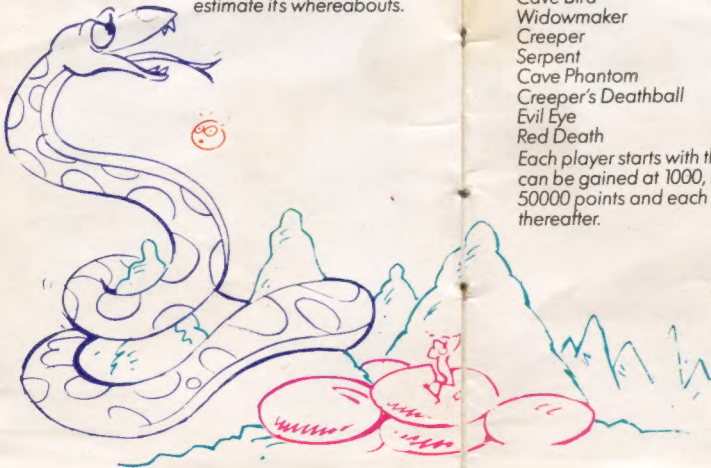 estimate its whereabouts.
Cave Bird
Widowmaker
Creeper
Serpent
Cave Phantom
Creeper's Deathball
Evil Eye
Red Death
Each player starts with
can be gained at 1000,
50000 points and each
thereafter.